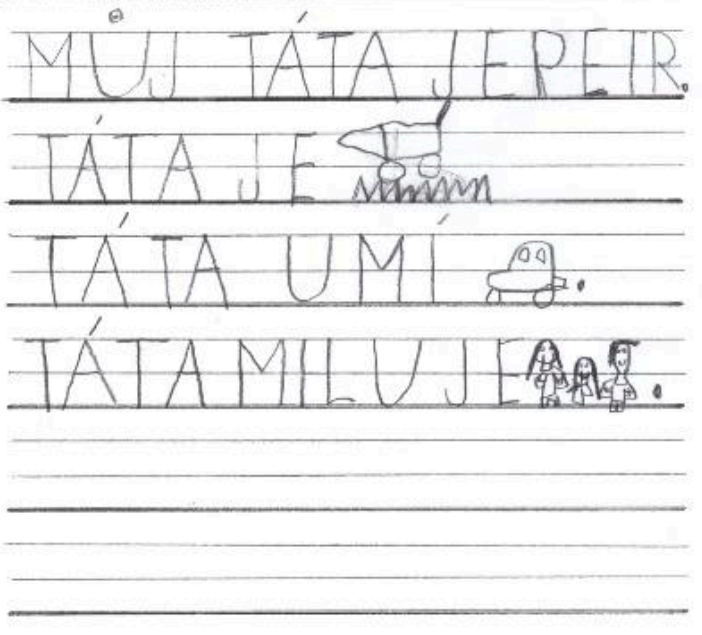 MŮJ TÁTA JE PETR.
TÁTA JE
TÁTA UMÍ .
TÁTA MILUJE .